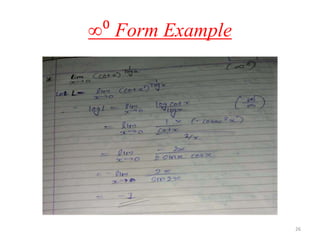 ∞⁰ Form Example
lim x→0 (cot x)^(1/log x) (∞⁰)
Let L = lim x→0 (cot x)^(1/log x)
log L = lim x→0 log cot x / log x
= lim x→0
= lim x→0 -2x / 2 sin x cos x
= lim 2x / sin 2x
= 1
26